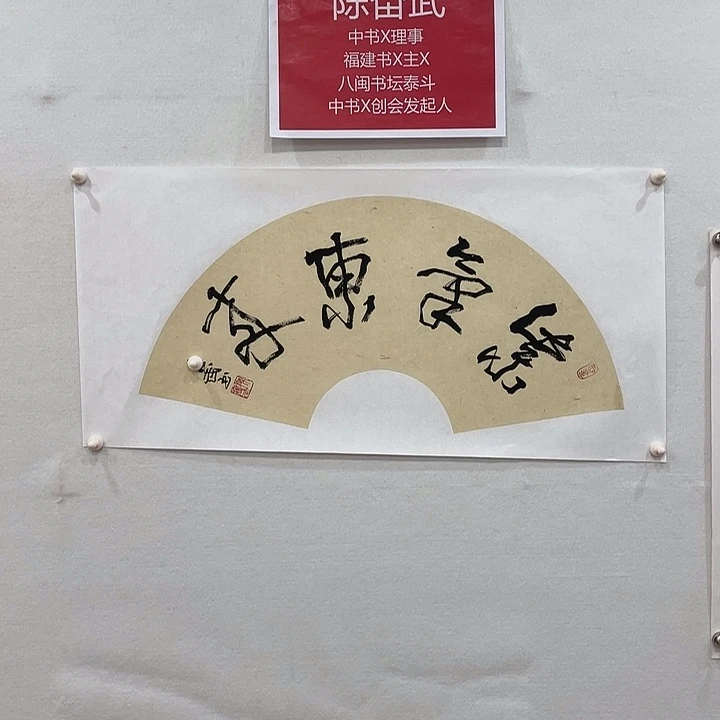 陈奋武
中书X理事
福建书X主X
八闽书坛泰斗
中书X创会发起人
紫气东来